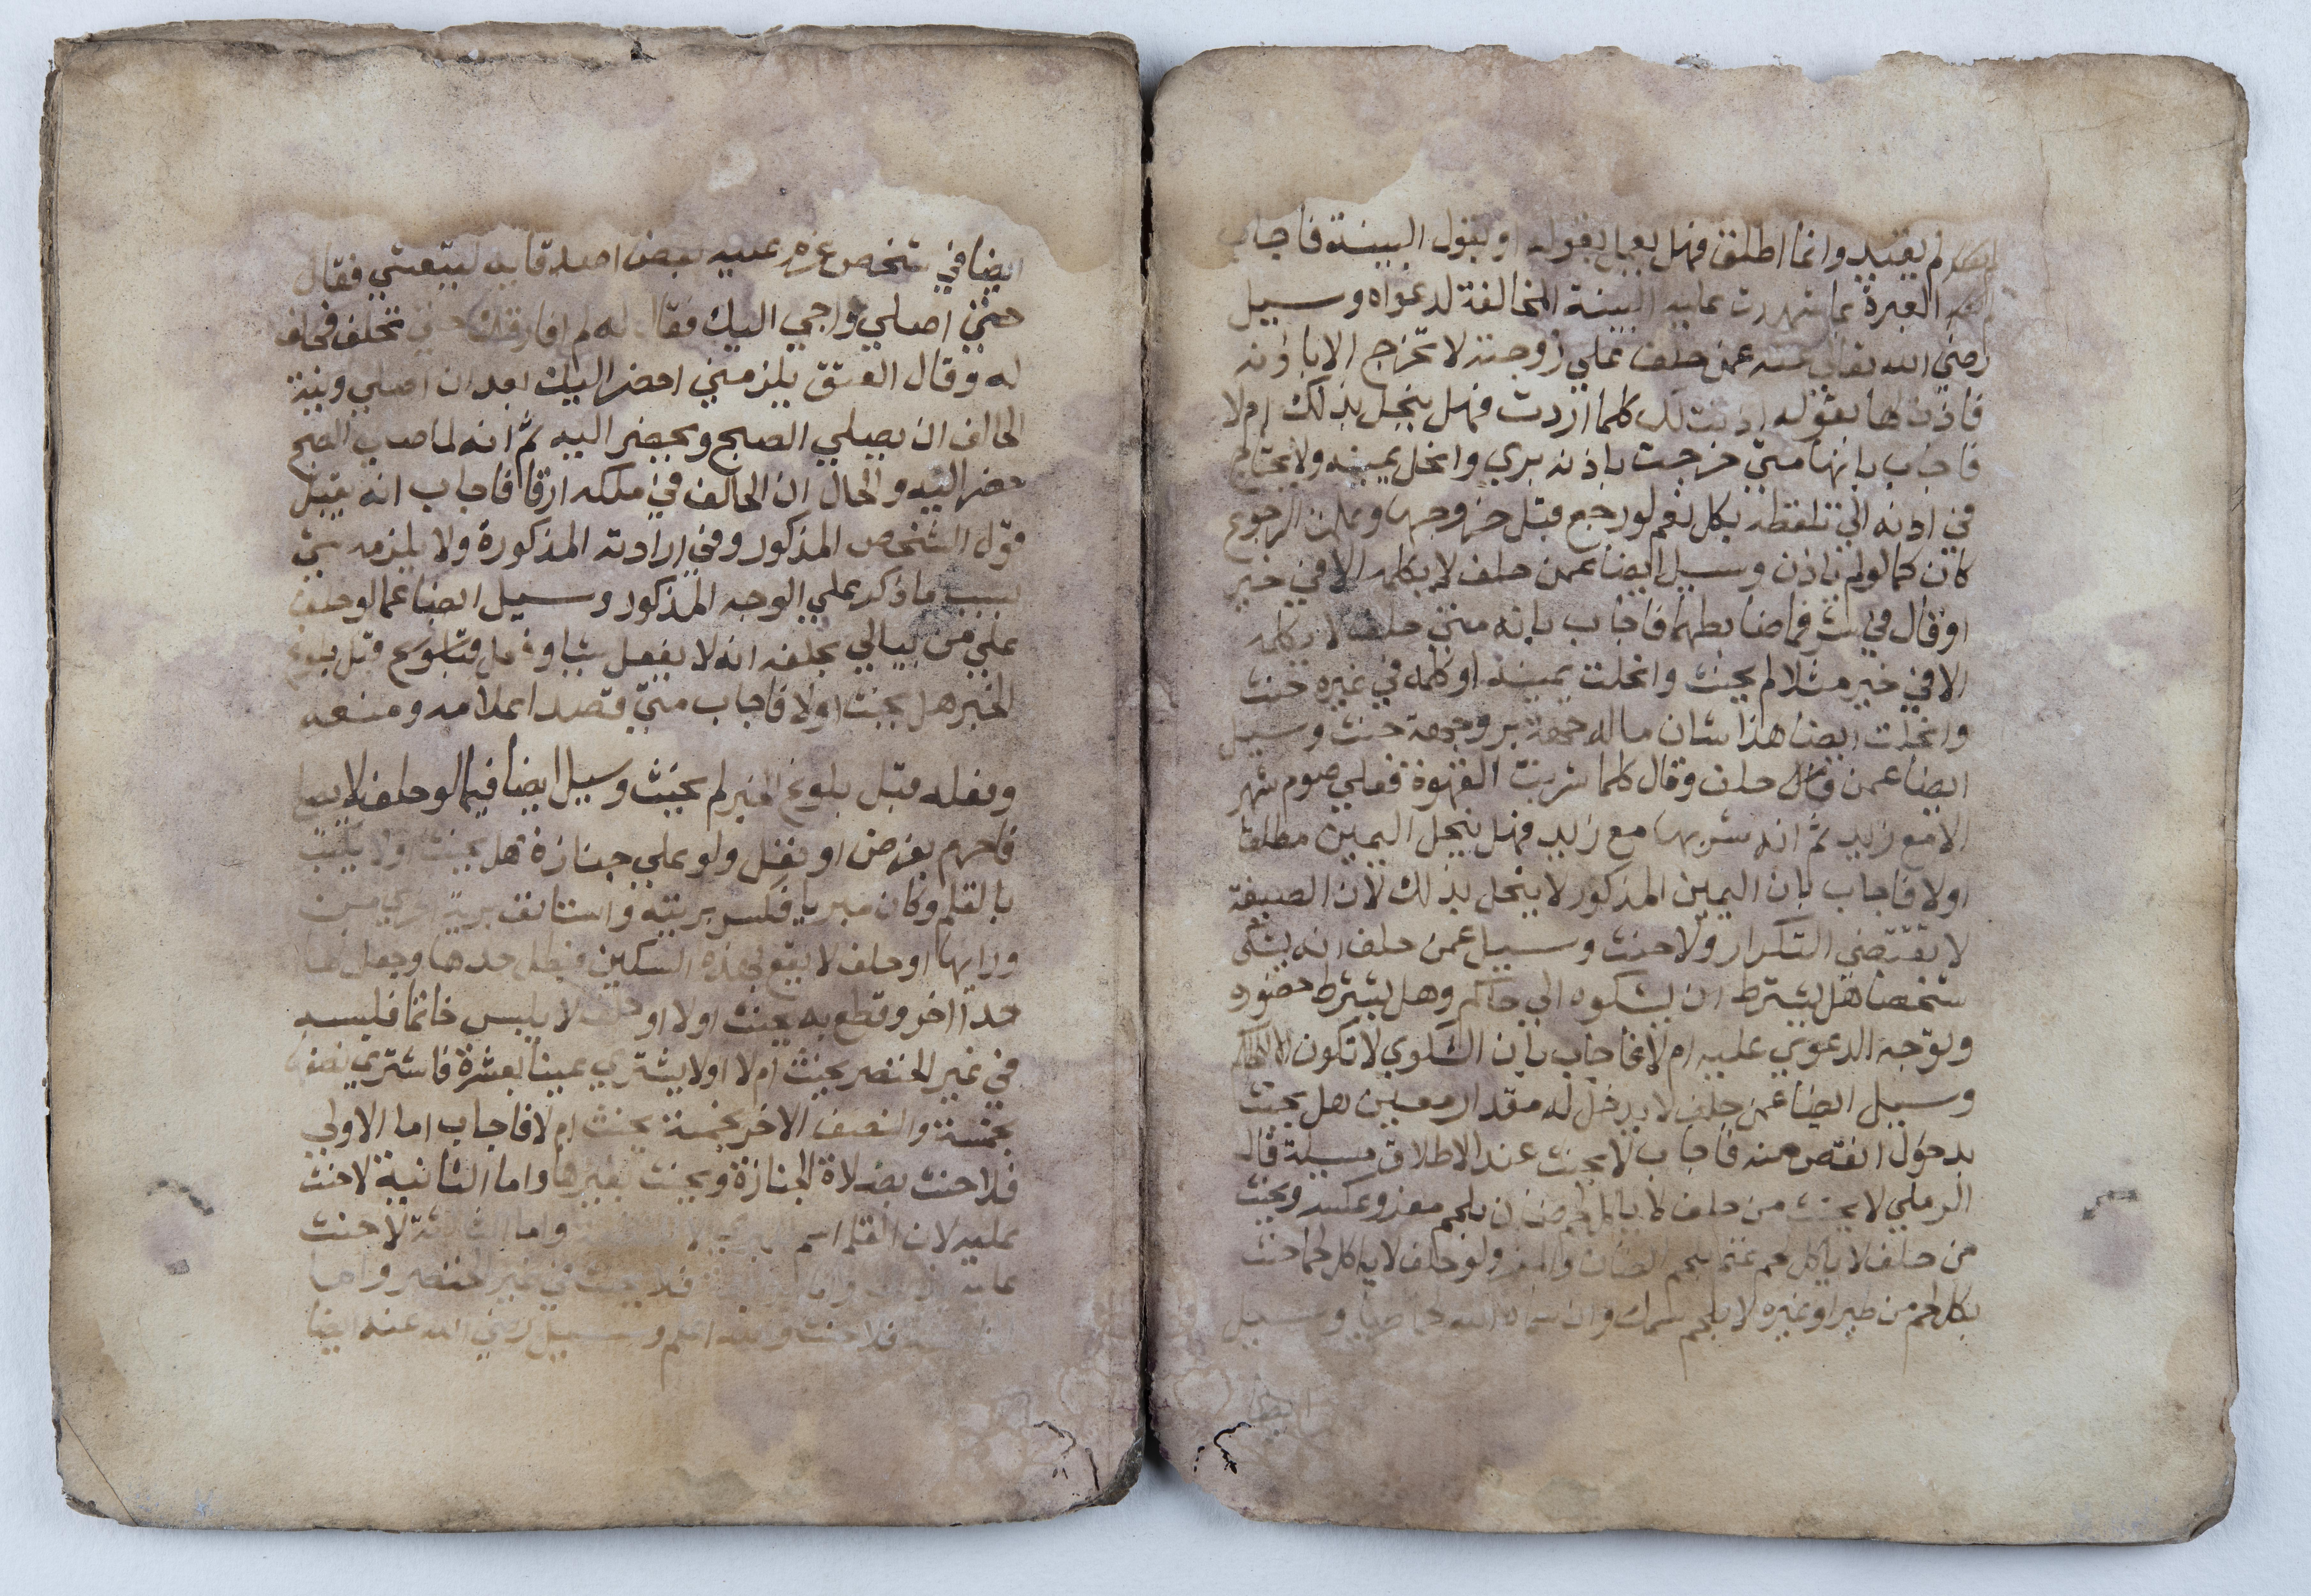 لم يقيد وانما اطلق فهل يعمل بقوله او بقول البينة فاجاب
العبرة بما شهدت عليه البينة المخالفة لدعواه وسيل
رضي الله تعالى عنه عمن حلف علي زوجته لا تخرج الا باذنه
فاذن لها بقوله اذنت لك كلما اردت فهل ينحل بذلك ام لا
فاجاب بانها متي خرجت باذنه بري وانحل يمينه ولا يحتاج
في اذنه الي تلفظه بكل نعم لو رجع قبل خروجها وعلمت الرجوع
كان كما لو لم ياذن وسيل ايضا عمن حلف لا يكلمه الا في خير
او قال في شر فما ضابطهما فاجاب بانه متي حلف لا يكلمه
الا في خير مثلا لم يحنث وانحلت يمينه او كلمه في غيره حنث
وانحلت ايضا هذا شان ما له جهة بر وجهة حنث وسيل
ايضا عمن حلف وقال كلما شربت القهوة فعلي صوم شهر
الا مع زيد ثم انه شربها مع زيد فهل ينحل اليمين مطلقا
اولا فاجاب بان اليمين المذكور لا ينحل بذلك لان الصيغة
لا تقتضي التكرار ولا حنث وسيل عمن حلف انه يشتكي
شخصا هل يشترط ان يشكوه الي حاكم وهل يشترط حضوره
وتوجه الدعوي عليه ام لا فاجاب بان الشكوي لا تكون الا لحاكم
وسيل ايضا عمن حلف لا يدخل له مقدار معين هل يحنث
بدخول انقص منه فاجاب لا يحنث عند الاطلاق مسيلة قال
الرملي لا يحنث من حلف لا ياكل لحم ضان بلحم معز وعكسه ويحنث
من حلف لا ياكل لحم غنم بلحم الضان والمعز ولو حلف لا ياكل لحما حنث
بكل لحم من طير او غيره لا بلحم سمك وان سماه الله لحما طريا وسيل
ايضا
ايضا في شخص عزم عليه بعض اصدقايه ليتعشي فقال
حتي اصلي واجي اليك فقال له لم افارقك حتي تحلف فحلف
له وقال العتق يلزمني احضر اليك بعد ان اصلي ونية
الحالف ان يصلي الصبح ويحضر اليه ثم انه لما صلي الصبح
حضر اليه والحال ان الحالف في ملكه ارقا فاجاب انه يقبل
قول الشخص المذكور وفي ارادته المذكورة ولا يلزمه شي
بسبب ما ذكر علي الوجه المذكور وسيل ايضا عما لو حلف
علي من يبالي بحلفه انه لا يفعل شيا وفعل قبل بلوغ
الخبر هل يحنث اولا فاجاب متي قصد اعلامه ومنعه
وفعله قبل بلوغ الخبر لم يحنث وسيل ايضا فيما لو حلف لا يصلي
فاحرم بفرض او نفل ولو علي جنازة هل يحنث اولا يكتب
بالقلم وكان مبريا فكسر بريته واستانف برية اخري من
ورايها او حلف لا يقطع بهذه السكين فبطل حدها وجعل لها
حدا اخر وقطع به يحنث اولا او حلف لا يلبس خاتما فلبسه
في غير الخنصر يحنث ام لا اولا يشتري عينا بعشرة فاشتري نصفها
بخمسة والنصف الاخر بخمسة يحنث ام لا فاجاب اما الاولي
فلا حنث بصلاة الجنازة ويحنث بغيرها واما الثانية لا حنث
عليه لان القلم اسم واما الثالثة لا حنث
عليه فلا يحنث في غير الخنصر واما
فلا حنث والله اعلم وسيل رضي الله عنه ايضا